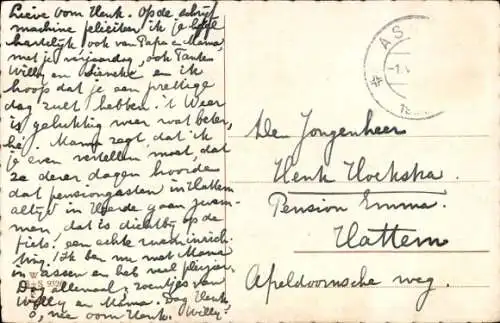 Lieve oom Henk. Op de schrijf
machine feliciteer ik je
hartelijk ook van Papa en Mama,
met je verjaardag, ook Tante
Willy en Lieneke en ik
hoop dat je een prettige
dag zult hebben. 't Weer
is gelukkig weer wat beter,
hè. Mama zegt, dat ik
je even vertellen moet, dat
ze dezer dagen hoorde
dat pensiongasten in Hattem
altijd in Heerde gaan zwem-
men, dat is dichtbij op de
fiets. een echte zweminrich-
ting. Ik ben nu met Mama
in Assen en heb veel plezier.
Dag allemaal, zoentjes van
Willy en Mama. Dag Henk
o, nee oom Henk. Willy.
AS
Den Jongenheer
Henk Hoekstra.
Pension Emma.
Hattem
Apeldoornsche weg.